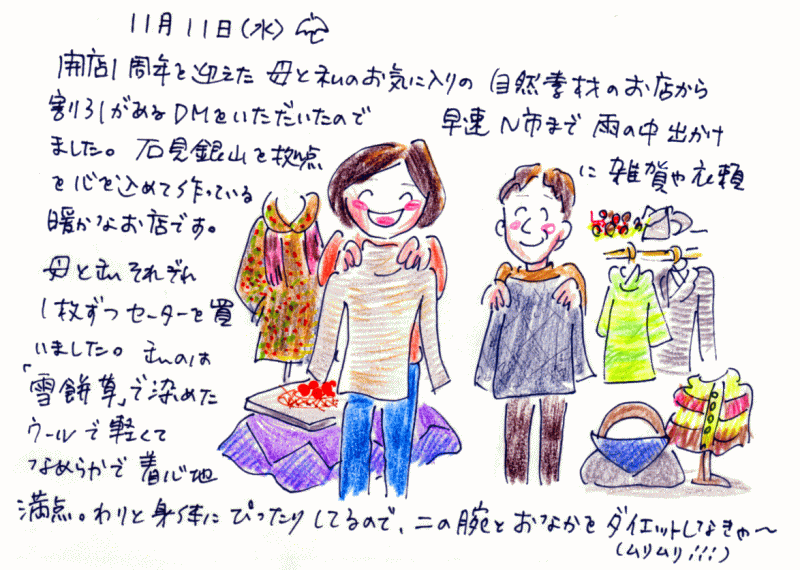 11月11日(水)
開店1周年を迎えた 母と私のお気に入りの 自然素材のお店から
割引があるDMをいただいたので 早速N市まで雨の中出かけ
ました。石見銀山を拠点に 雑貨や衣類
を心を込めて作っている
暖かなお店です。
母と私それぞれ
1枚ずつセーターを買
いました。私のは
「雪餅草」で染めた
ウールで軽くて
なめらかで着心地
満点。わりと身体にぴったりしてるので、二の腕とおなかをダイエットしなきゃ〜
(ムリムリ!!!)